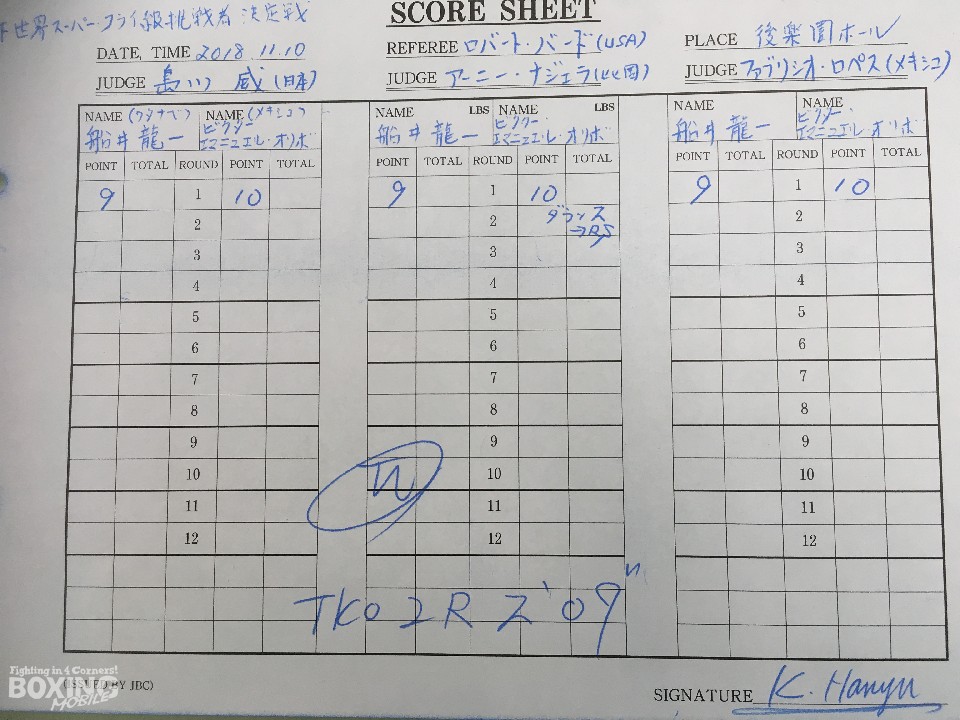 世界スーパーフライ級挑戦者決定戦
SCORE SHEET
DATE, TIME 2018.11.10
REFEREE ロバート・バード(USA)
PLACE 後楽園ホール
JUDGE 島川 威(日本)
JUDGE アーニー・ナジェラ(比国)
JUDGE ファブリシオ・ロペス(メキシコ)
NAME (ワタナベ) NAME (メキシコ) NAME LBS NAME LBS NAME NAME
船井龍一 ビクター エマニュエル・オリボ 船井龍一 ビクター エマニュエル・オリボ 船井龍一 ビクター エマニュエル・オリボ
POINT TOTAL ROUND POINT TOTAL POINT TOTAL ROUND POINT TOTAL POINT TOTAL ROUND POINT TOTAL
9 1 10 9 1 10 9 1 10
2 2 2
→RS
3 3 3
4 4 4
5 5 5
6 6 6
7 7 7
8 8 8
9 9 9
10 10 10
11 11 11
12 12 12
W
TKO 2R 2'09"
Fighting in 4 Corners!
BOXING
MOBILE
(ISSUED BY JBC)
SIGNATURE K. Hanyu